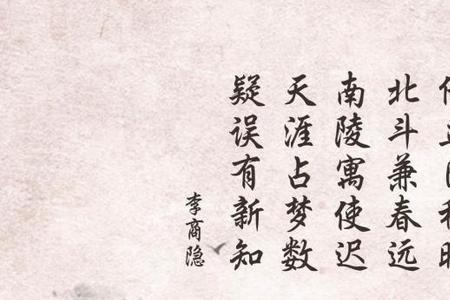 北斗兼春远
南陵寓使迟
天涯占梦数
疑误有新知
李商隐